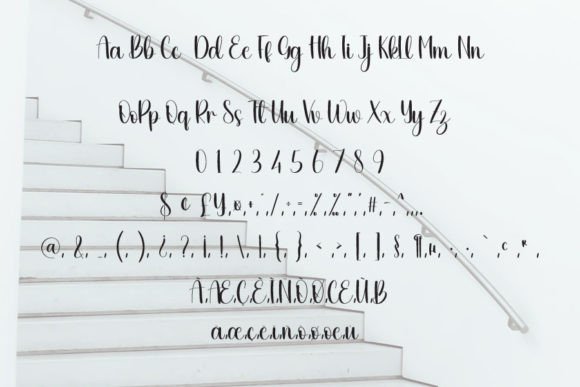 Aa Bb Cc Dd Ee Ff Gg Hh Ii Jj Kk Ll Mm Nn
Oo Pp Qq Rr Ss Tt Uu Vv Ww Xx Yy Zz
0 1 2 3 4 5 6 7 8 9
$ ¢ £ ¥,¤,+,-,/,÷,=,%,‰,",',#,~,^,..
@, &, _, (, ), ¿, ?, ¡, !, \, |, {, }, <, >, [, ], §, ¶,µ, ·, `, c, ®,
À,Æ,Ç,È,Ì,Ñ,Ò,Ø,Œ,Ù,B
à,æ,ç,è,ì,ñ,ò,ø,œ,ù